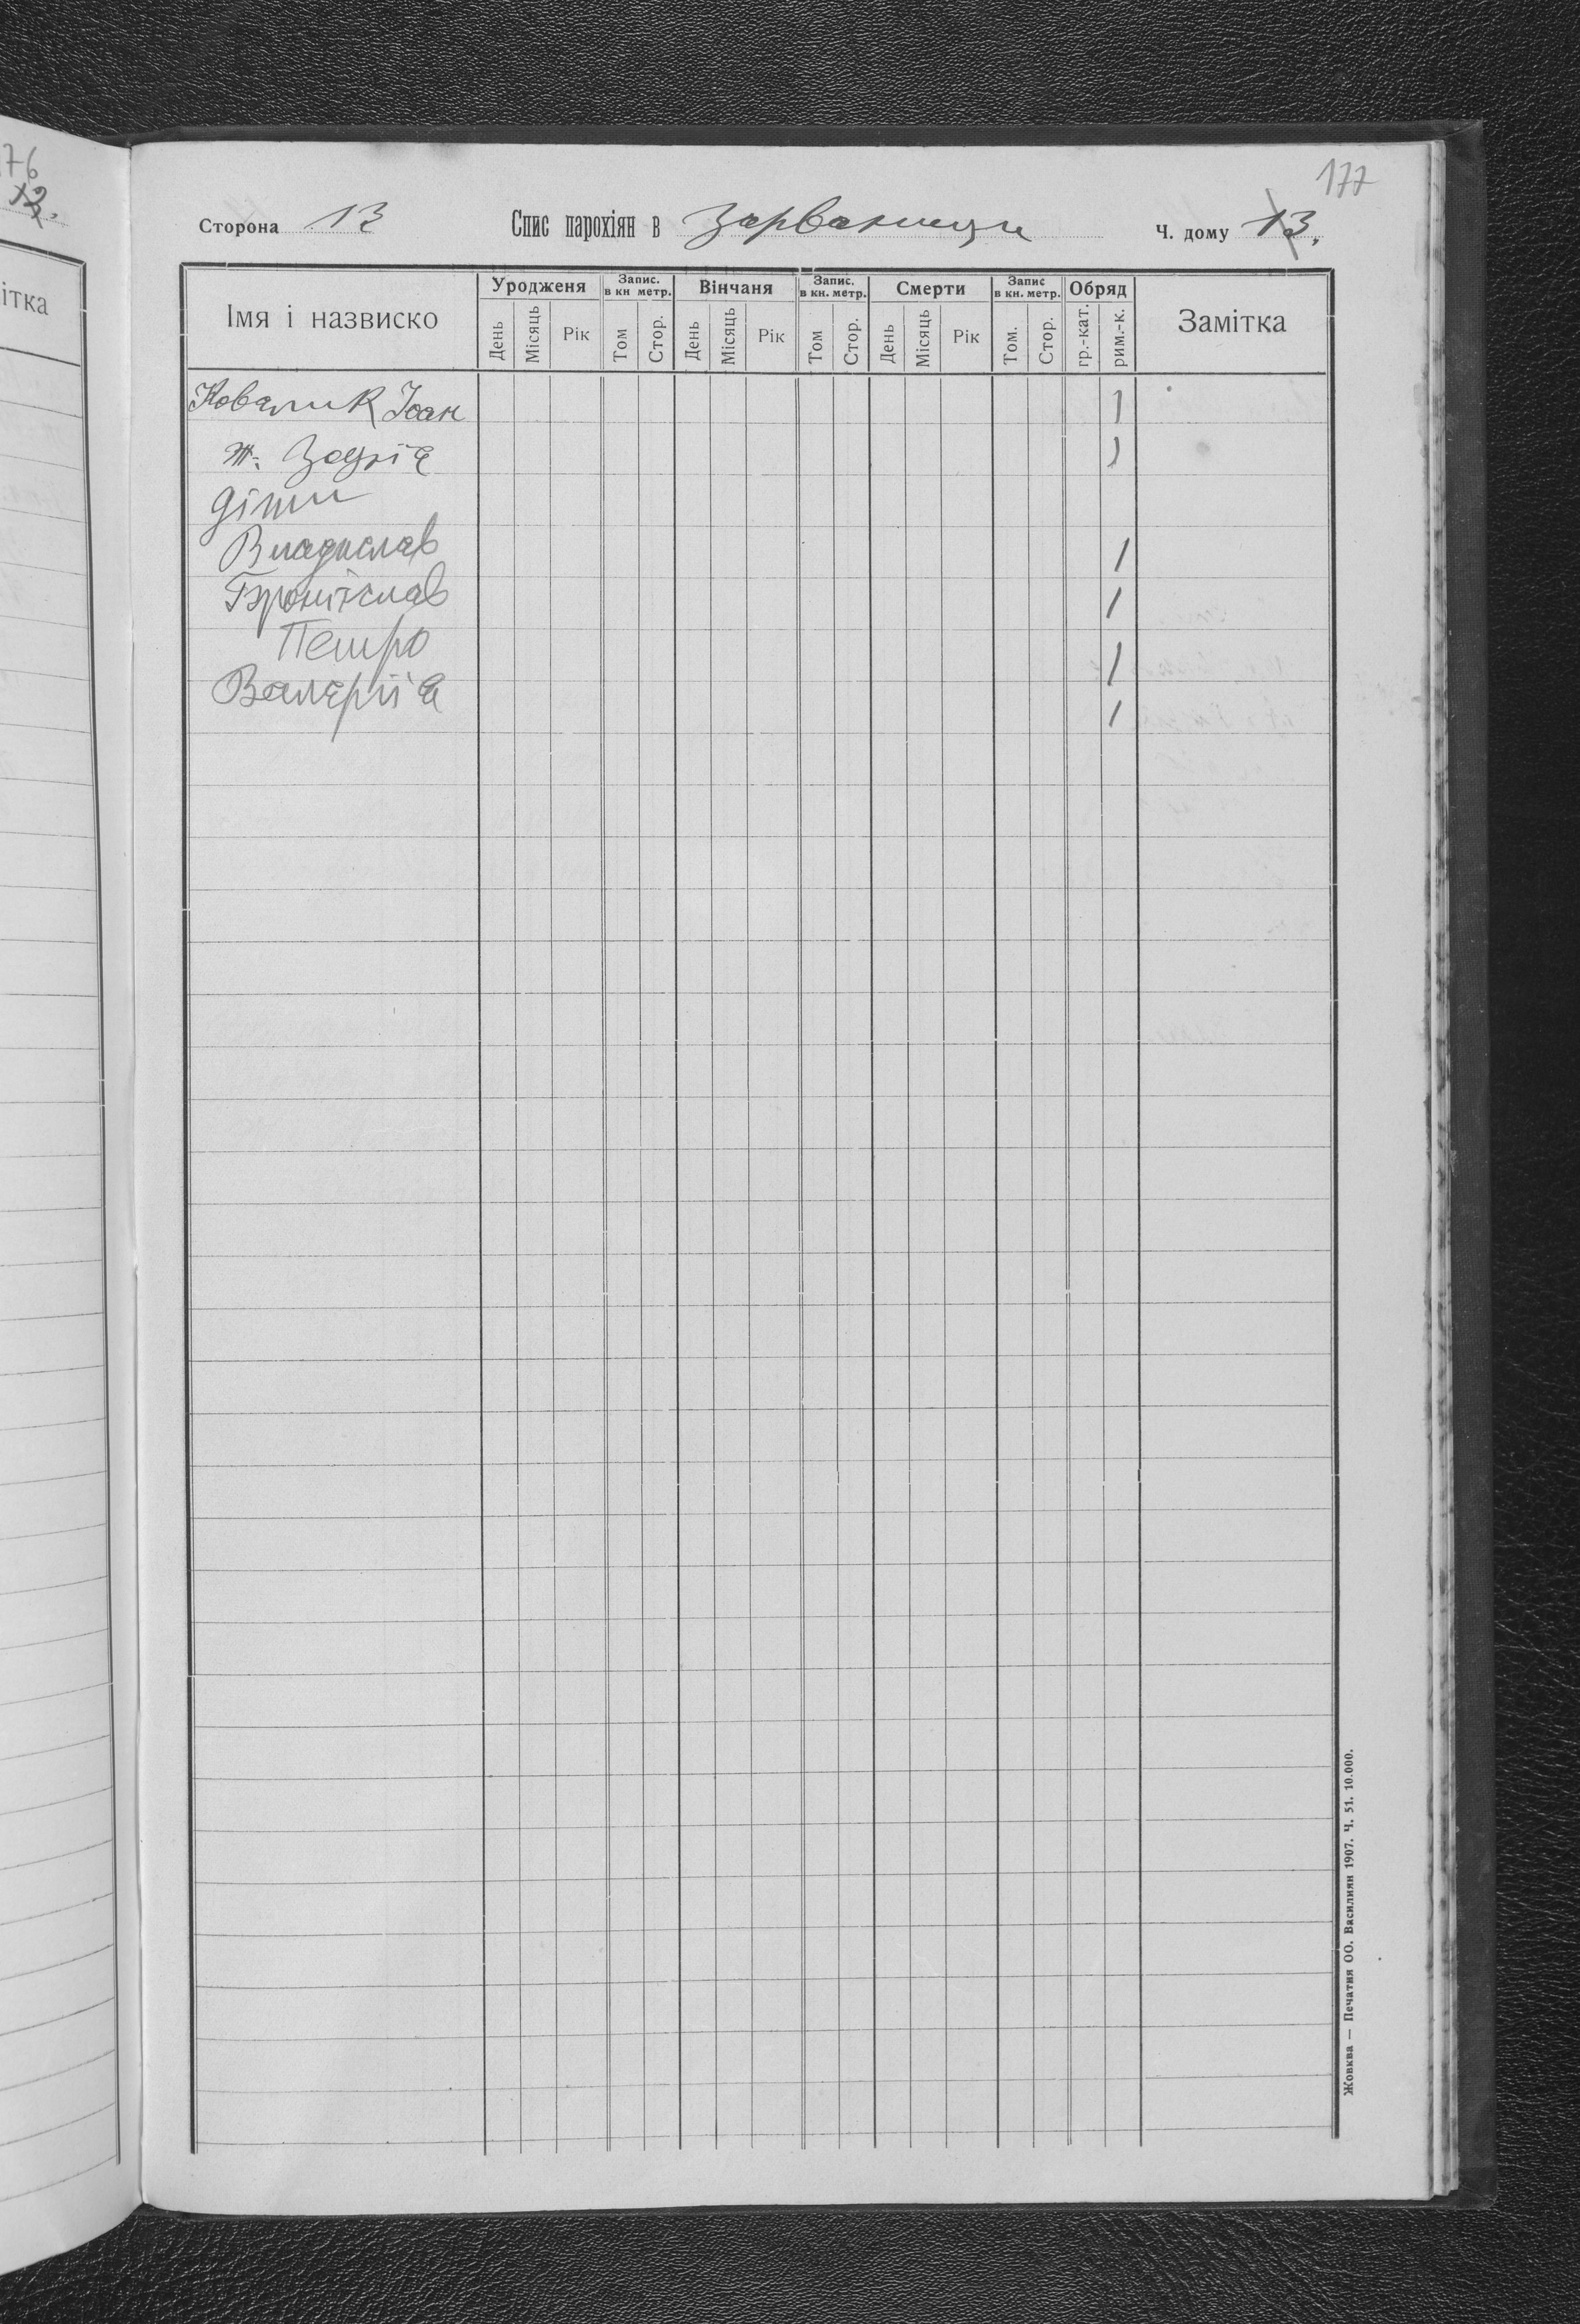 176
12.
ітка
177
Сторона 13 Спис парохіян в Зарваници Ч. дому 13.
Імя і назвиско Уродженя Запис. в кн метр. Вінчаня Запис. в кн. метр. Смерти Запис в кн. метр. Обряд Замітка
День Місяць Рік Том Стор. День Місяць Рік Том Стор. День Місяць Рік Том. Стор. гр.-кат. рим.-к.
Ковалик Іоан 1
ж. Зофія 1
діти
Владислав 1
Броніслав 1
Петро 1
Валерія 1
Жовква — Печатня ОО. Василиян 1907. Ч. 51. 10.000.